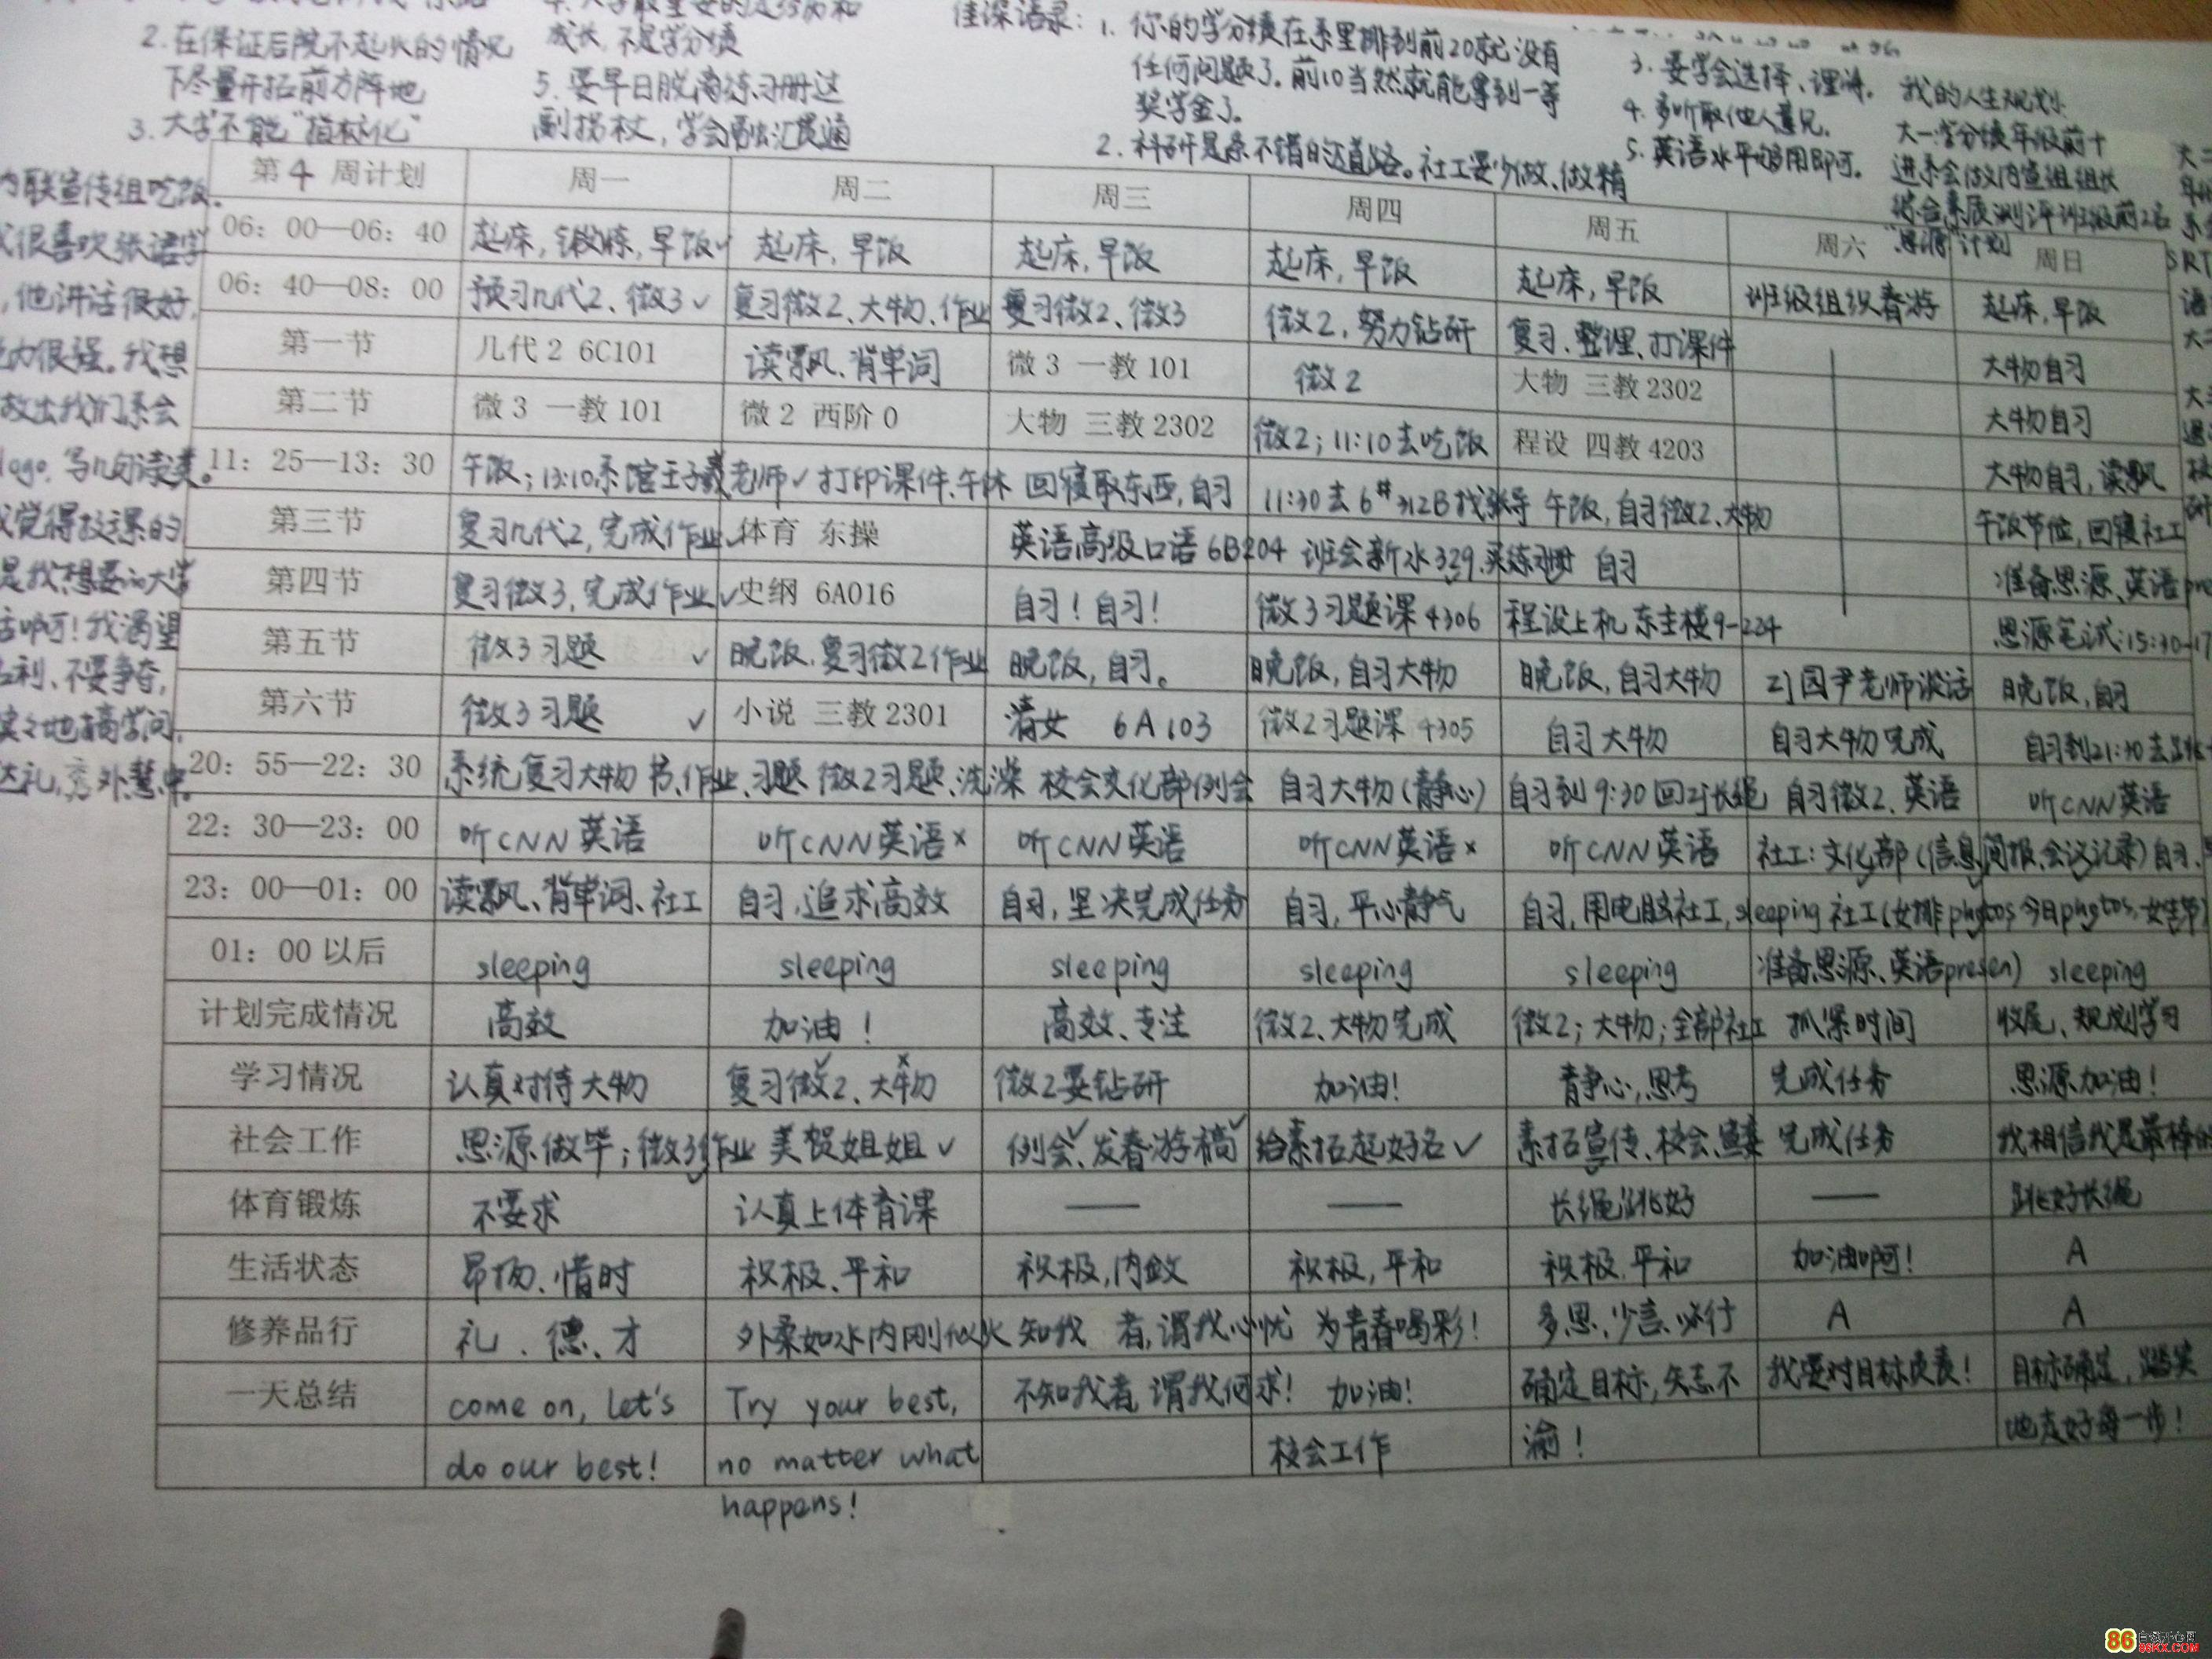 2. 在保证后院不起火的情况
下尽量开拓前方阵地
3. 大学不能"指标化"
成长，不是学分绩
5. 要早日脱离练习册这
副拐杖，学会融汇贯通
佳深语录：1. 你的学分绩在系里排到前20就没有
任何问题了。前10当然就能拿到一等
奖学金了。
2. 科研是条不错的道路。社工要少做、做精
3. 要学会选择、谭讲。
4. 多听取他人意见。
5. 英语水平够用即可。
我的人生规划
大一：学分绩年级前十
进系会做内宣组组长
综合素质测评班级前2名
"思源"计划
内联宣传组吃饭。
很喜欢张语宇
，他讲话很好，
力很强。我想
做出我们系会
logo，写几句读美。
觉得按这课的
是我想要的大学
啊！我渴望
名利、不要争夺，
地搞学问，
达礼，秀外慧中。
第4周计划 周一 周二 周三 周四 周五 周六 周日
06：00—06：40 起床，锻炼，早饭✓ 起床，早饭 起床，早饭 起床，早饭 起床，早饭 班级组织春游 起床，早饭
06：40—08：00 预习几代2、微3✓ 复习微2、大物、作业 复习微2、微3 微2，努力钻研 复习、整理、打课件 大物自习
第一节 几代2 6C101 读飘、背单词 微3 一教101 微2 大物 三教2302 大物自习
第二节 微3 一教101 微2 西阶0 大物 三教2302 微2；11:10去吃饭 程设 四教4203 大物自习，读飘
11：25—13：30 午饭；13:10系馆王子羲老师✓ 打印课件、午休 回寝取东西，自习 11:30去6#312B找张导 午饭，自习微2、大物 午饭节俭，回寝社工
第三节 复习几代2，完成作业✓ 体育 东操 英语高级口语6B204 班会新水329，买练习册 自习 准备思源、英语pre
第四节 复习微3，完成作业✓ 史纲 6A016 自习！自习！ 微3习题课4306 程设上机 东主楼9-224 思源笔试:15:30-17
第五节 微3习题 ✓ 晚饭，复习微2作业 晚饭，自习。 晚饭，自习大物 晚饭，自习大物 与园尹老师谈话 晚饭，自习
第六节 微3习题 ✓ 小说 三教2301 清女 6A103 微2习题课 4305 自习大物 自习大物完成 自习到21:30去
20：55—22：30 系统复习大物 书、作业、习题 微2习题、洗澡 校会文化部例会 自习大物（静心） 自习到9:30回 长绳 自习微2、英语 听CNN英语
22：30—23：00 听CNN英语 听CNN英语× 听CNN英语 听CNN英语× 听CNN英语 社工：文化部（信息简报、会议记录）自习
23：00—01：00 读飘、背单词、社工 自习，追求高效 自习，坚决完成任务 自习，平心静气 自习，用电脑社工，sleeping 社工（女排photos 今日photos，女生节
01：00以后 sleeping sleeping sleeping sleeping sleeping 准备思源、英语presen） sleeping
计划完成情况 高效 加油！ 高效、专注 微2、大物完成 微2；大物；全部社工 抓紧时间 收尾、规划学习
学习情况 认真对待大物 复习微2✓、大物× 微2要钻研 加油！ 静心，思考 完成任务 思源加油！
社会工作 思源做毕；微3作业 美贺姐姐✓ 例会✓、发春游稿✓ 给素拓起好名✓ 素拓宣传、校会、 完成任务 我相信我是最棒的
体育锻炼 不要求 认真上体育课 —— —— 长绳跳好 —— 跳好长绳
生活状态 昂扬、惜时 积极、平和 积极，内敛 积极，平和 积极，平和 加油啊！ A
修养品行 礼、德、才 外柔如水内刚似火 知我者，谓我心忧 为青春喝彩！ 多思、少言、必行 A A
一天总结 come on, let's Try your best, 不知我者，谓我何求！ 加油！ 确定目标，矢志不 我要对目标负责！ 目标确定，踏实
do our best! no matter what 校会工作 渝！ 地走好每一步！
happens!
86
86KX.COM